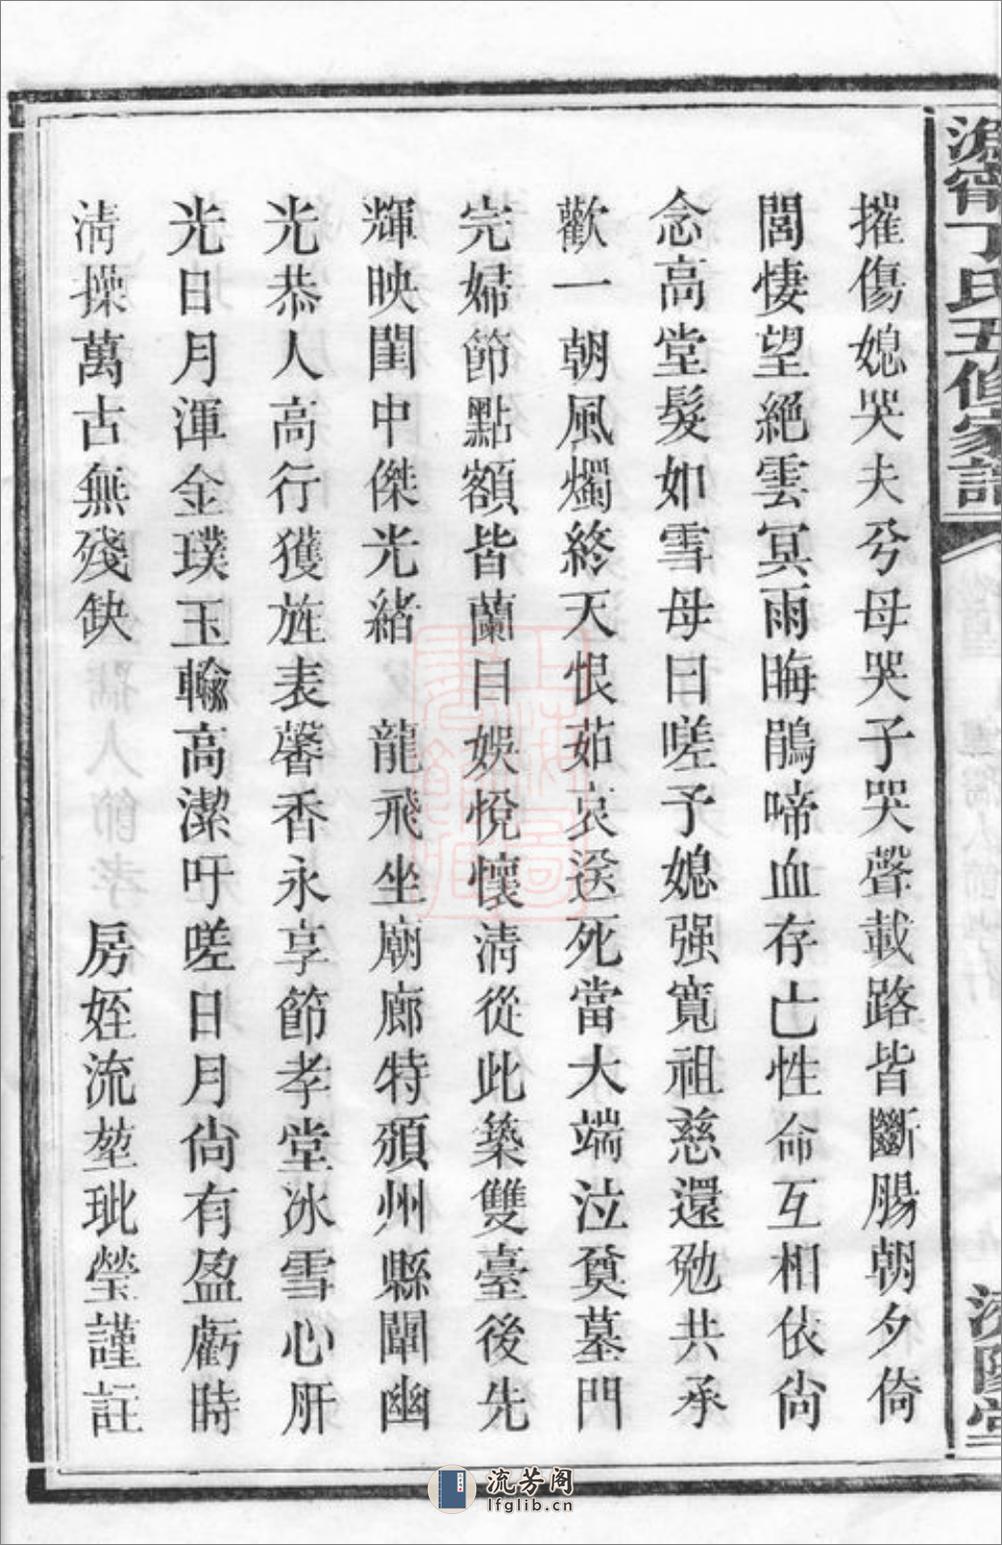 溈甯丁氏五修家譜
濟陽堂
摧傷媳哭夫兮母哭子哭聲載路皆斷腸朝夕倚
閭悽望絕雲冥雨晦鵑啼血存亡性命互相依尙
念高堂髮如雪母曰嗟予媳强寬祖慈還勉共承
歡一朝風燭終天恨茹哀送死當大端泣奠墓門
完婦節點額皆蘭目娛悅懷淸從此築雙臺後先
輝映閨中傑光緒 龍飛坐廟廊特頒州縣闡幽
光恭人高行獲旌表馨香永享節孝堂冰雪心肝
光日月渾金璞玉輸高潔吁嗟日月尙有盈虧時
淸操萬古無殘缺 房姪流堃玭瑩謹誌
流芳阁
lfglib.cn